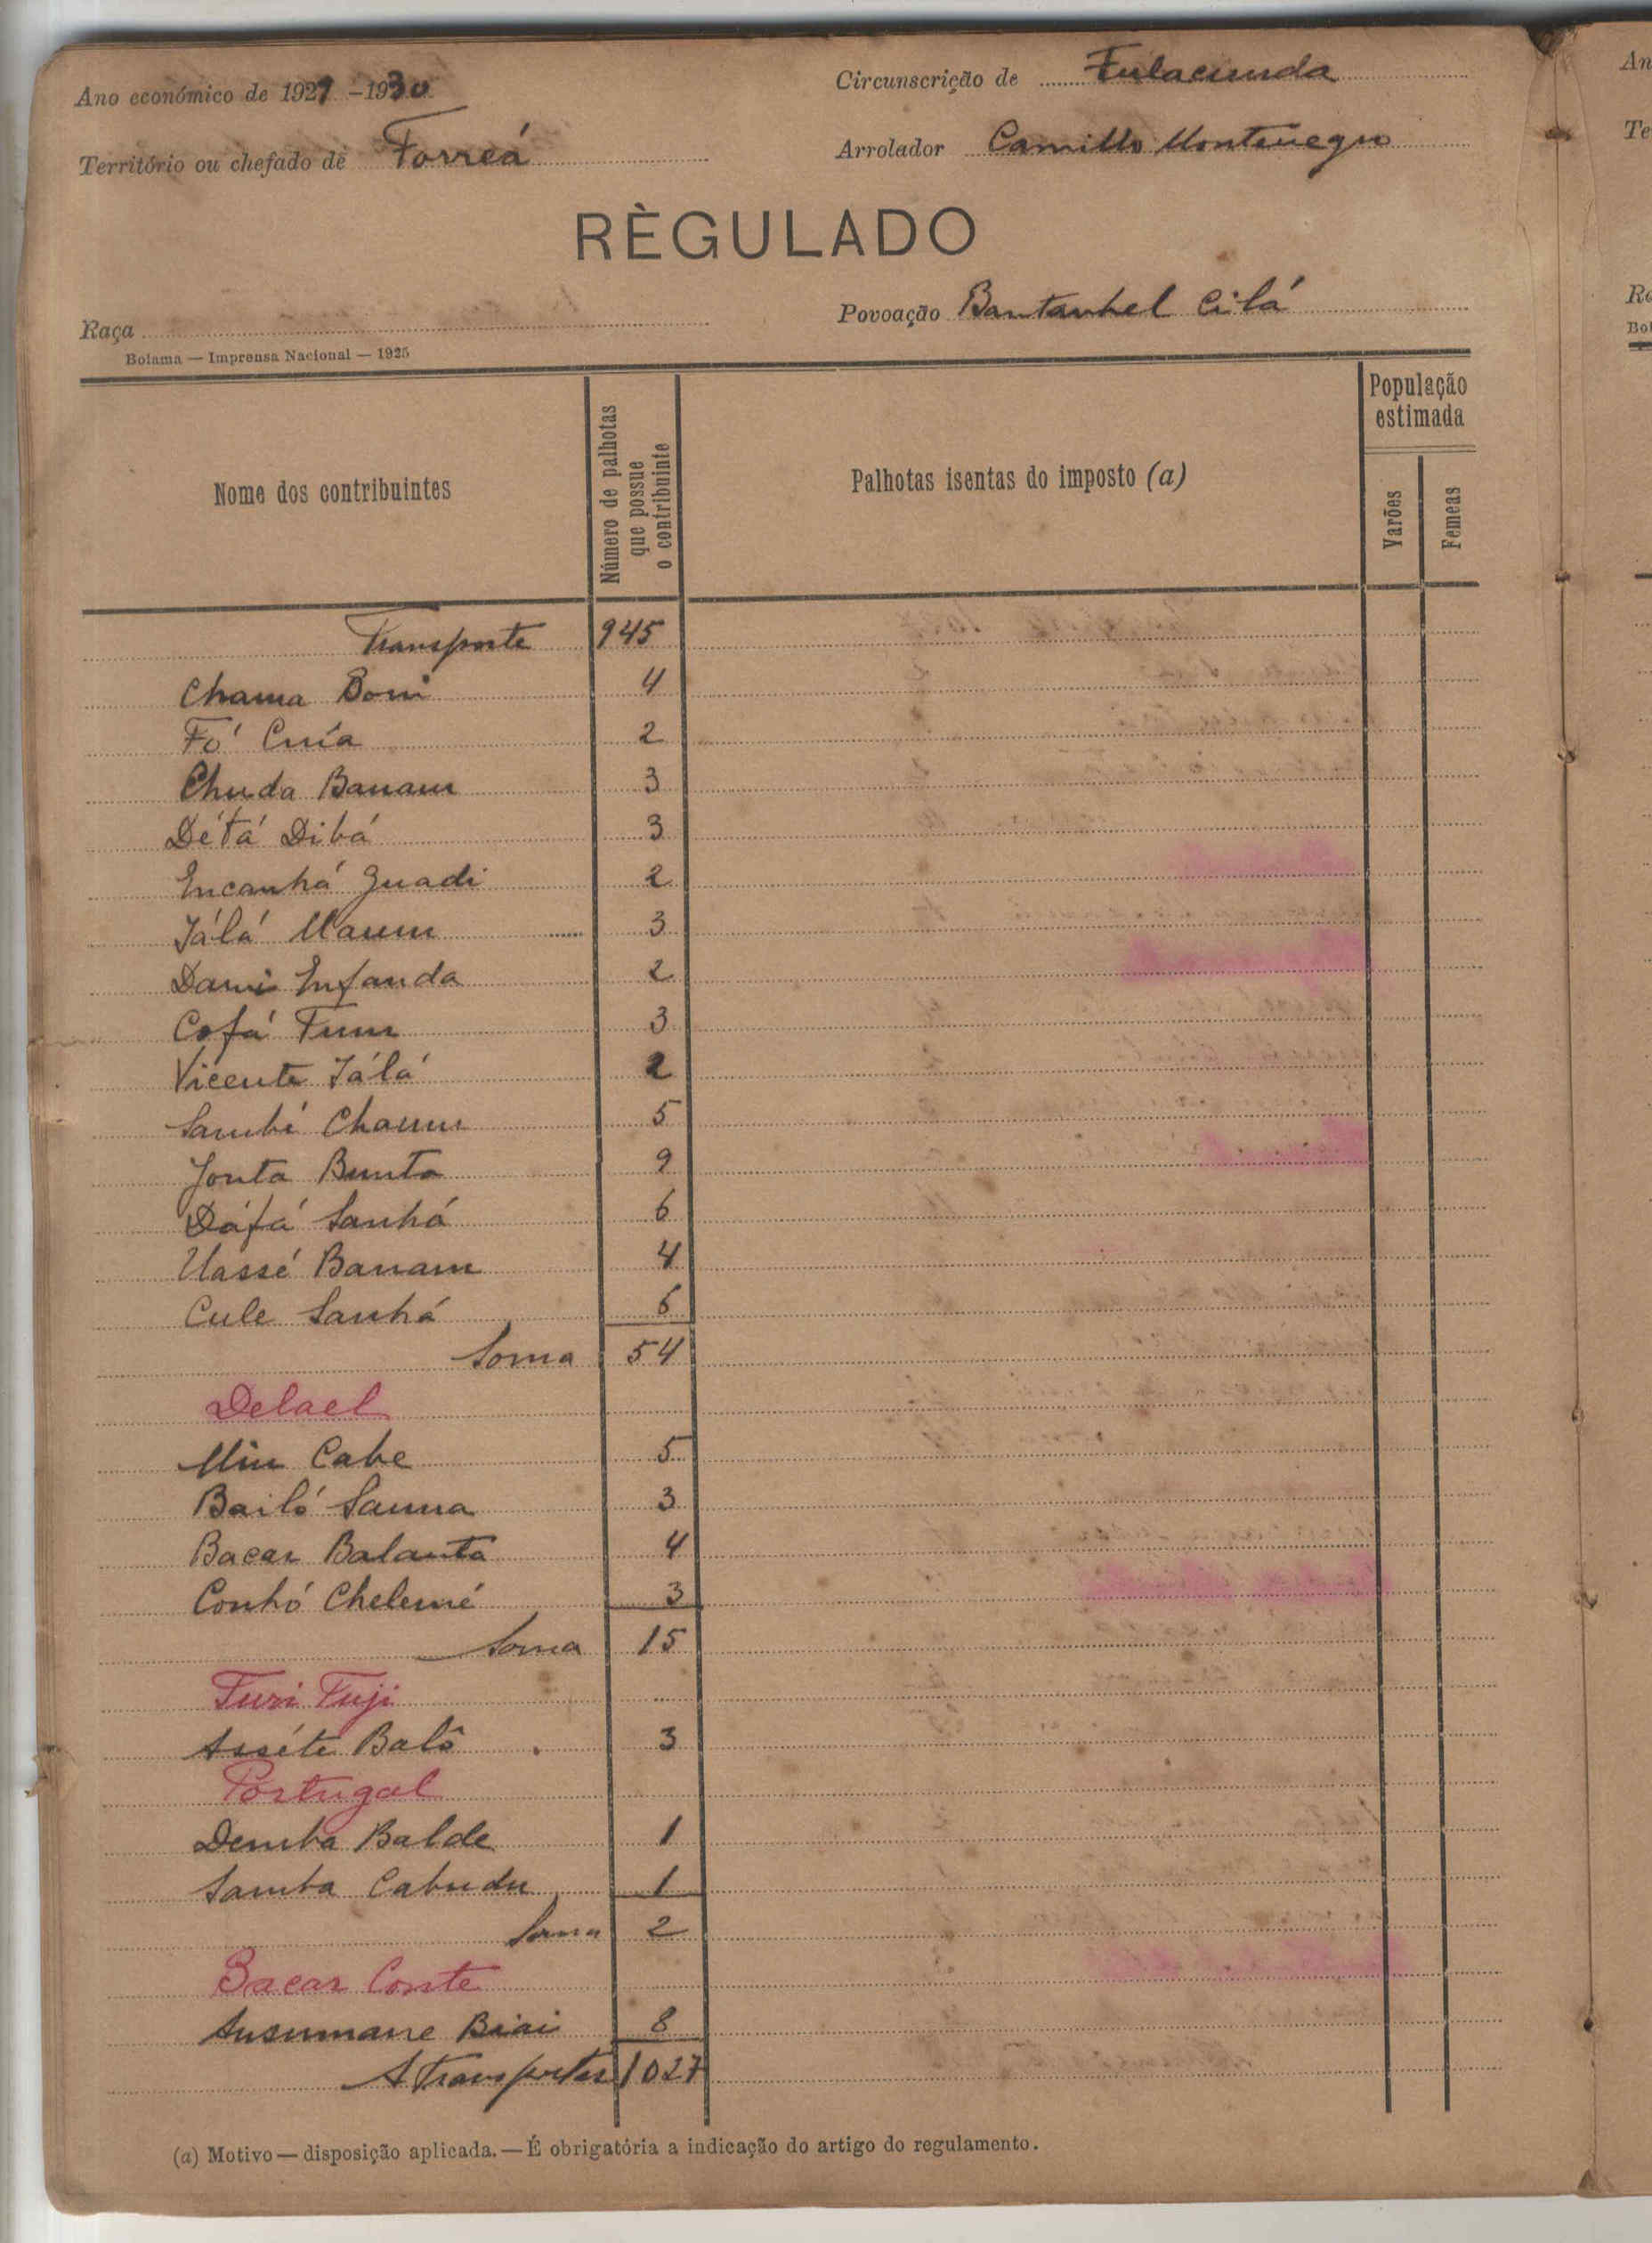 Ano económico de 1929-1930 Circunscrição de Fulacunda
Território ou chefado de Forreá Arrolador Camillo Montenegro
RÈGULADO
Raça Povoação Bantanhel Cilá
Bolama — Imprensa Nacional — 1925
Nome dos contribuintes
Número de palhotas que possue o contribuinte
Palhotas isentas do imposto (a)
População estimada
Varões
Femeas
Transporte 945
Chama Boni 4
Fó Cuía 2
Chuda Banam 3
Détá Dibá 3
Encanhá Guadi 2
Jálá Maum 3
Dami Infanda 2
Cofá Tum 3
Vicente Jálá 2
Sambé Chaum 5
Jonta Bunta 9
Dáfá Sanhá 6
Uassé Banam 4
Cule Sanhá 6
Soma 54
Delael
Miu Cabe 5
Bailó Sauna 3
Bacar Balanta 4
Conhó Chelemé 3
Soma 15
Turi Tuji
Asséte Baló 3
Portugal
Demba Balde 1
Samba Cabudu 1
Soma 2
Bacar Conte
Susumane Biai 8
A Transportar 1027
(a) Motivo — disposição aplicada. — É obrigatória a indicação do artigo do regulamento.
An
Te